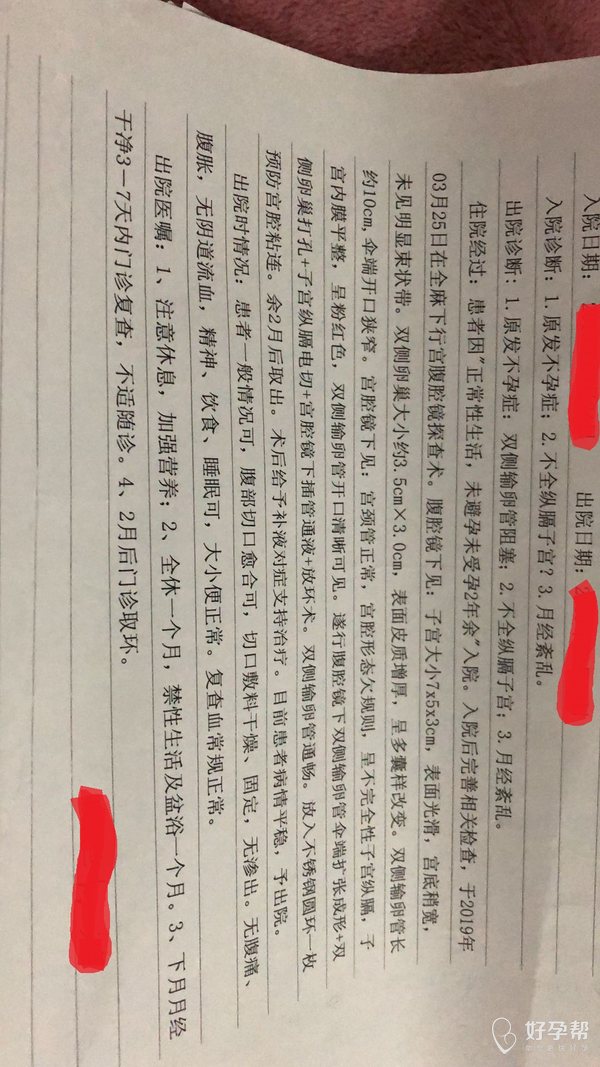 入院日期： 出院日期：
入院诊断：1.原发不孕症；2.不全纵膈子宫？3.月经紊乱。
出院诊断：1.原发不孕症：双侧输卵管阻塞；2.不全纵膈子宫；3.月经紊乱。
住院经过：患者因"正常性生活，未避孕未受孕2年余"入院。入院后完善相关检查，于2019年
03月25日在全麻下行宫腹腔镜探查术。腹腔镜下见：子宫大小7x5x3cm，表面光滑，宫底稍宽，
未见明显束状带。双侧卵巢大小约3.5cm×3.0cm，表面皮质增厚，呈多囊样改变。双侧输卵管长
约10cm,伞端开口狭窄。宫腔镜下见：宫颈管正常，宫腔形态欠规则，呈不完全性子宫纵膈，子
宫内膜平整，呈粉红色，双侧输卵管开口清晰可见。遂行腹腔镜下双侧输卵管伞端扩张成形+双
侧卵巢打孔+子宫纵膈电切+宫腔镜下插管通液+放环术。双侧输卵管通畅。放入不锈钢圆环一枚
预防宫腔粘连。余2月后取出。术后给予补液对症支持治疗。目前患者病情平稳，予出院。
出院时情况：患者一般情况可，腹部切口愈合可，切口敷料干燥、固定，无渗出。无腹痛、
腹胀，无阴道流血，精神、饮食、睡眠可，大小便正常。复查血常规正常。
出院医嘱：1、注意休息，加强营养；2、全休一个月，禁性生活及盆浴一个月。3、下月月经
干净3-7天内门诊复查，不适随诊。4、2月后门诊取环。
好孕帮